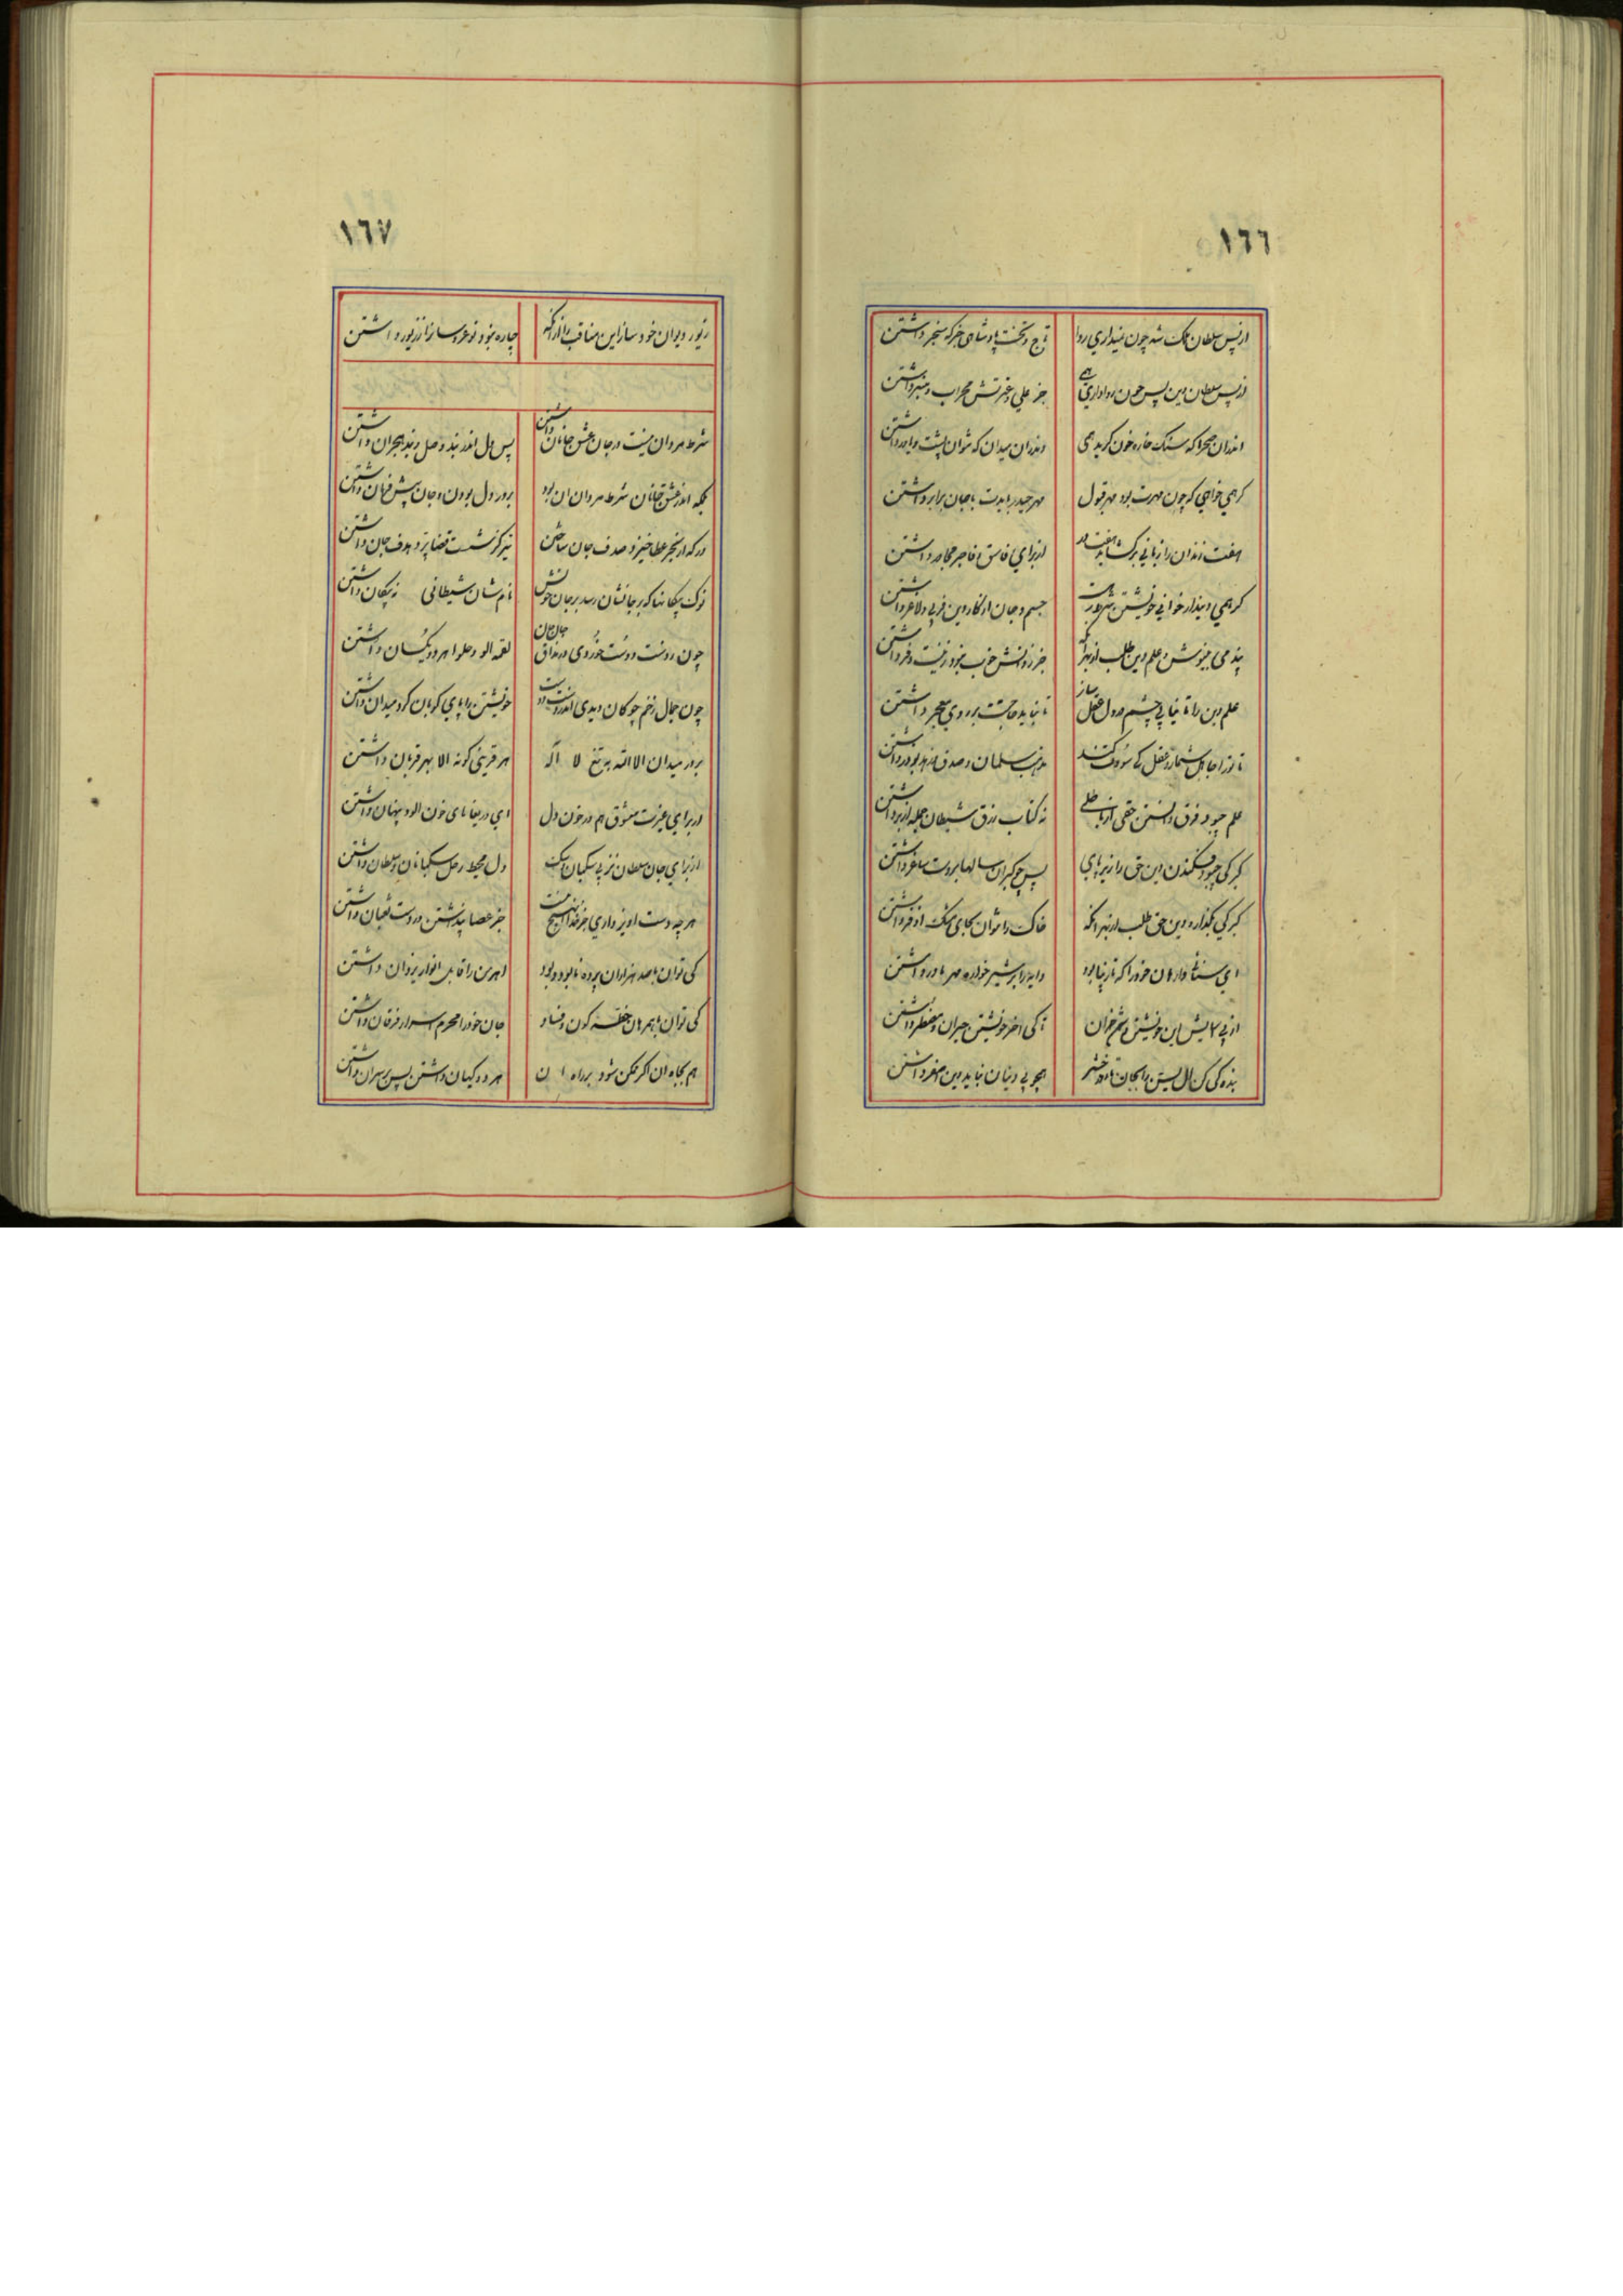 ١٦٦
از پس سلطان ملک شه چون نمیداری روا
تاج و تخت پادشاهی جز که سنجر داشتن
از پس سلطان دین پس چون روا داری همی
جز علی و عترتش محراب و منبر داشتن
اندران صحرا که سنک خاره خون کرید همی
وندران میدان که نتوان پشت و یاور داشتن
کر همی خواهی که چون مهرت بود مهر قبول
مهر حیدر بایدت با جان برابر داشتن
هفت زندان را زبانی برکشاید هفت در
از برای فاسق و فاجر مجاور داشتن
کر همی دیندار خوانی خویشتن شرط است
جسم و جان از کار دین فربی و لاغر داشتن
پند می بنیوش و علم دین طلب از بهر آنک
جز بدانش خوب نبود زینت و فر داشتن
علم دین را تا نیابی چشم دل عقل ساز
تا نباید حاجت بر روی معجر داشتن
تا ترا جاهل شمارد عقل کی سودت کند
مذهب سلمان و صدق زهد بوذر داشتن
علم چبود فرق دانستن حقی از باطلی
نه کتاب زرق شیطان جمله از بر داشتن
کبرکی چبود فکندن دین حق را زیر پای
پس چو کبران سالها بر دست ساغر داشتن
کبرکی بکذار و دین حق طلب از بهر انکه
خاک را نتوان بجای مشک اذفر داشتن
ای سنائی وارهان خود را که نازیبا بود
دایه را بر شیرخواره مهر مادر داشتن
از پی اسایش این خویشتن دشمن خران
تا کی اخر خویشتن حیران و مضطر داشتن
بنده کی کن ال یسن را بجان تا روز حشر
همچو بی دینان نباید دین اصفر داشتن
١٦٧
زیور دیوان خود ساز این مناقب را ازانکه
چاره نبود نوعروسانرا ز زیور داشتن
شرط مردان نیست در جان عشق جانان داشتن
پس دل اندر بند وصل و بند هجران داشتن
بلکه اندر عشق جانان شرط مردان ان بود
بر در دل بودن و جان پیش فرمان داشتن
در که از بحر عطا خیزد صدف جان ساختن
تیر کز شست قضا پرد هدف جان داشتن
نوک پیکانها که بر جانشان رسد بر جان خوش
نام شان شیطانی نه پیکان داشتن
چون ز دست دوست خوردی در مذاق جان جان
لقمه الو و حلوا هر دو یکسان داشتن
چون جمال زخم چوکان دیدی اندر دست دوست
خویشتن را پای کوبان کرد میدان داشتن
بر در میدان الا الله به تیغ لا اله
هر قرینی کونه الا بهر قربان داشتن
از برای غیرت معشوق هم در خون دل
ای دریغاهای خون الود پنهان داشتن
از برای جان سلطان نز پی سکبان است
دل محیط رحل سکبانان و سلطان داشتن
هر چه دست اویز داری جز خدا ان نیست هیچ
جز عصا پنداشتن در دست ثعبان داشتن
کی توان با صد هزاران پرده نابود و بود
اهرمن را قابل انوار یزدان داشتن
کی توان با همرهان خطه کون و فساد
جان خود را محرم اسرار فرقان داشتن
هم بجاه ان اکر ممکن شود بر راه ان
هر دو کیهان داشتن پس بر سر ان داشتن